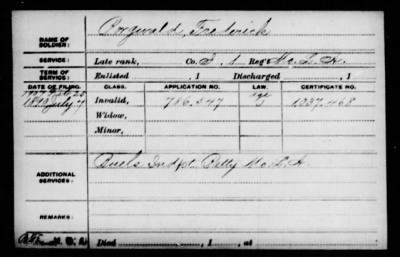 NAME OF SOLDIER: Borgwald, Frederick
SERVICE: Late rank, Co. I, 1 Reg't Mo. L. A.
TERM OF SERVICE: Enlisted , 1 Discharged , 1
DATE OF FILING. CLASS. APPLICATION NO. LAW. CERTIFICATE NO.
1890 July 7 Invalid, 786.547 1037.468
Widow,
Minor,
ADDITIONAL SERVICES: Buels Ind pt. Batty Mo. L. A.
REMARKS:
Died , 1 , at